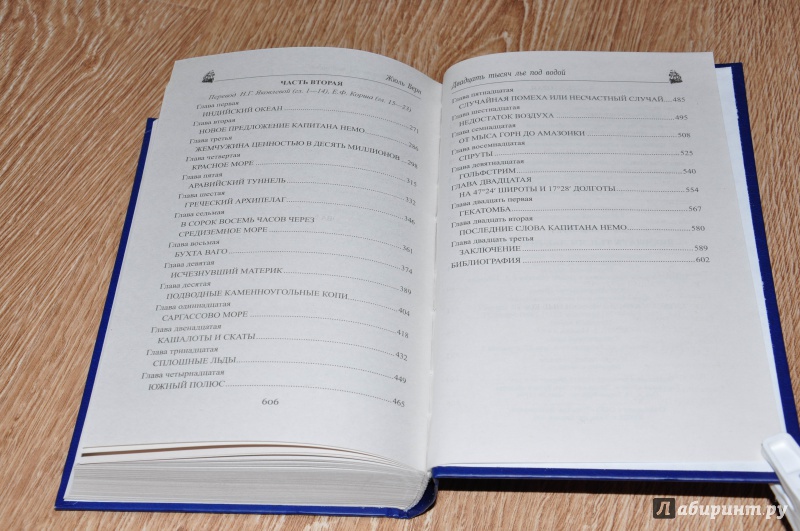 Жюль Верн
ЧАСТЬ ВТОРАЯ
Перевод Н.Г. Яковлевой (гл. 1—14), Е.Ф. Корша (гл. 15—23)
Глава первая
ИНДИЙСКИЙ ОКЕАН 271
Глава вторая
НОВОЕ ПРЕДЛОЖЕНИЕ КАПИТАНА НЕМО 286
Глава третья
ЖЕМЧУЖИНА ЦЕННОСТЬЮ В ДЕСЯТЬ МИЛЛИОНОВ 298
Глава четвертая
КРАСНОЕ МОРЕ 315
Глава пятая
АРАВИЙСКИЙ ТУННЕЛЬ 332
Глава шестая
ГРЕЧЕСКИЙ АРХИПЕЛАГ 346
Глава седьмая
В СОРОК ВОСЕМЬ ЧАСОВ ЧЕРЕЗ
СРЕДИЗЕМНОЕ МОРЕ 361
Глава восьмая
БУХТА ВИГО 374
Глава девятая
ИСЧЕЗНУВШИЙ МАТЕРИК 389
Глава десятая
ПОДВОДНЫЕ КАМЕННОУГОЛЬНЫЕ КОПИ 404
Глава одиннадцатая
САРГАССОВО МОРЕ 418
Глава двенадцатая
КАШАЛОТЫ И СКАТЫ 432
Глава тринадцатая
СПЛОШНЫЕ ЛЬДЫ 449
Глава четырнадцатая
ЮЖНЫЙ ПОЛЮС 465
606
Двадцать тысяч лье под водой
Глава пятнадцатая
СЛУЧАЙНАЯ ПОМЕХА ИЛИ НЕСЧАСТНЫЙ СЛУЧАЙ 485
Глава шестнадцатая
НЕДОСТАТОК ВОЗДУХА 495
Глава семнадцатая
ОТ МЫСА ГОРН ДО АМАЗОНКИ 508
Глава восемнадцатая
СПРУТЫ 525
Глава девятнадцатая
ГОЛЬФСТРИМ 540
ГЛАВА ДВАДЦАТАЯ
НА 47°24' ШИРОТЫ И 17°28' ДОЛГОТЫ 554
Глава двадцать первая
ГЕКАТОМБА 567
Глава двадцать вторая
ПОСЛЕДНИЕ СЛОВА КАПИТАНА НЕМО 580
Глава двадцать третья
ЗАКЛЮЧЕНИЕ 589
БИБЛИОГРАФИЯ 602
Лабиринт.ру